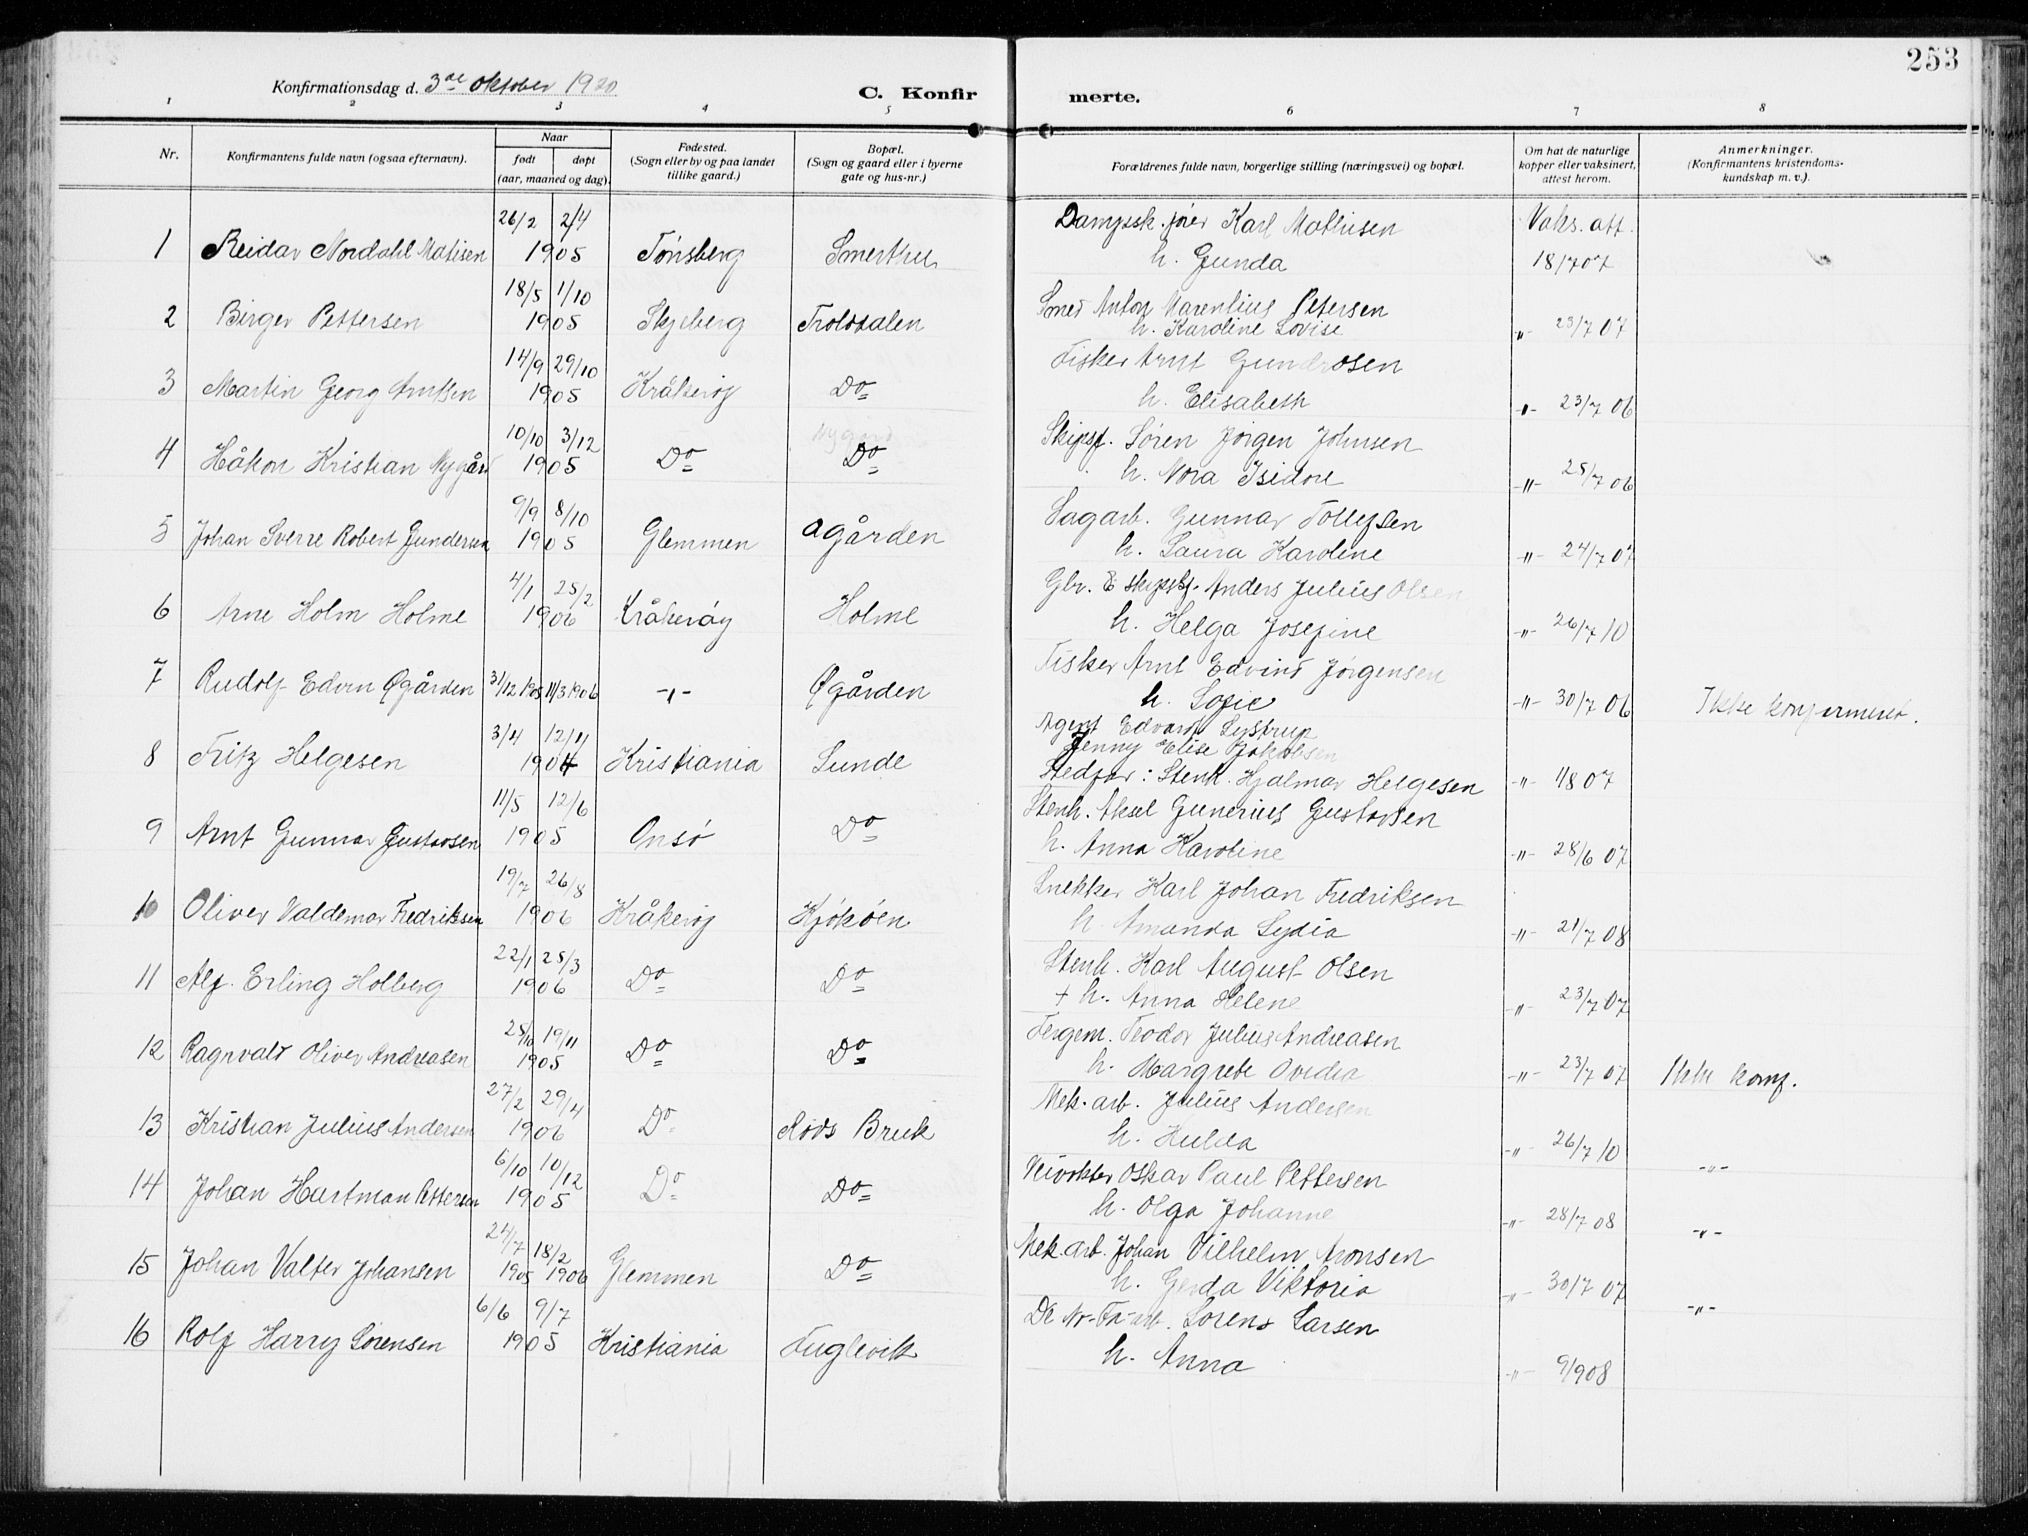 253
Konfirmationsdag d. 3die Oktober 1920
C. Konfirmerte.
1 2 3 4 5 6 7 8
Nr.
Konfirmantens fulde navn (ogsaa efternavn).
Naar født døpt (aar, maaned og dag).
Fødested. (Sogn eller by og paa landet tillike gaard.)
Bopæl. (Sogn og gaard eller i byerne gate og hus-nr.)
Forældrenes fulde navn, borgerlige stilling (næringsvei) og bopæl.
Om hat de naturlige kopper eller vaksinert, attest herom.
Anmerkninger. (Konfirmantens kristendoms-kundskap m. v.).
26/2 2/4 Dampssk. fører Karl Mathisen Vaks. att.
1 Reidar Nordahl Matisen 1905 Tønsberg Smerthu h. Gunda 18/7 07
18/5 1/10 Smed Anton Marentius Petersen
2 Birger Pettersen 1905 Skjeberg Troldalen h. Karoline Lovise -"- 23/7 07
14/9 29/10 Fisker Arnt Gundrosen
3 Martin Georg Arntsen 1905 Kråkerøy Do h. Elisabeth -"- 23/7 06
10/10 3/12 Nygård Skipsf. Søren Jørgen Johnsen
4 Håkon Kristian Nygård 1905 Do Do h. Nora Isidore -"- 25/7 06
9/9 8/10 Sagarb. Gunnar Tollefsen
5 Johan Sverre Robert Gundersen 1905 Glemmen Ågården h. Laura Karoline -"- 24/7 07
4/1 25/2 Gbr. & skipsbf. Anders Julius Olsen
6 Arne Holm Holme 1906 Kråkerøy Holme h. Helga Josefine -"- 26/7 10
Fisker Arnt Edvind Jørgensen
7 Rudolf Edvin Øgården 31/12 1905 11/3 1906 -"- Øgården h. Sofie -"- 30/7 06 Ikke konfirmeret.
Agent Edvard Systrup
3/4 12/11 Jenny Elise Jakobsen
8 Fritz Helgesen 1904 Kristiania Lunde Stedfar: Stenh. Hjalmar Helgesen -"- 1/8 07
11/5 12/6 Stenh. Aksel Gunerius Gustavsen
9 Arnt Gunnar Gustavsen 1905 Onsø Do h. Anna Karoline -"- 28/6 07
19/7 26/8 Snekker Karl Johan Fredriksen
10 Oliver Valdemar Fredriksen 1906 Kråkerøy Kjøkøen h. Amanda Lydia -"- 21/7 08
22/1 25/3 Stenh. Karl August Olsen
11 Alf Erling Holberg 1906 Do Do + h. Anna Helene -"- 23/7 07
25/10 19/11 Fergem. Teodor Julius Andreasen
12 Ragnvald Oliver Andreasen 1905 Do Do h. Margrete Ovedia -"- 23/7 07 Ikke konf.
27/2 29/4 Mek. arb. Julius Andersen
13 Kristian Julius Andersen 1906 Do Røds Bruk h. Hulda -"- 26/7 10
6/10 10/12 Veivokter Oskar Paul Pettersen -"-
14 Johan Hartman Pettersen 1905 Do Do h. Olga Johanne -"- 28/7 08
24/7 18/2 Mek. arb. Johan Vilhelm Aronsen -"-
15 Johan Valter Johansen 1905 1906 Glemmen Do h. Gerda Viktoria -"- 30/7 07
6/6 9/7 De Nr. Fa-arb. Lorens Larsen -"-
16 Rolf Harry Sørensen 1905 Kristiania Fuglevik h. Anna -"- 9/9 08